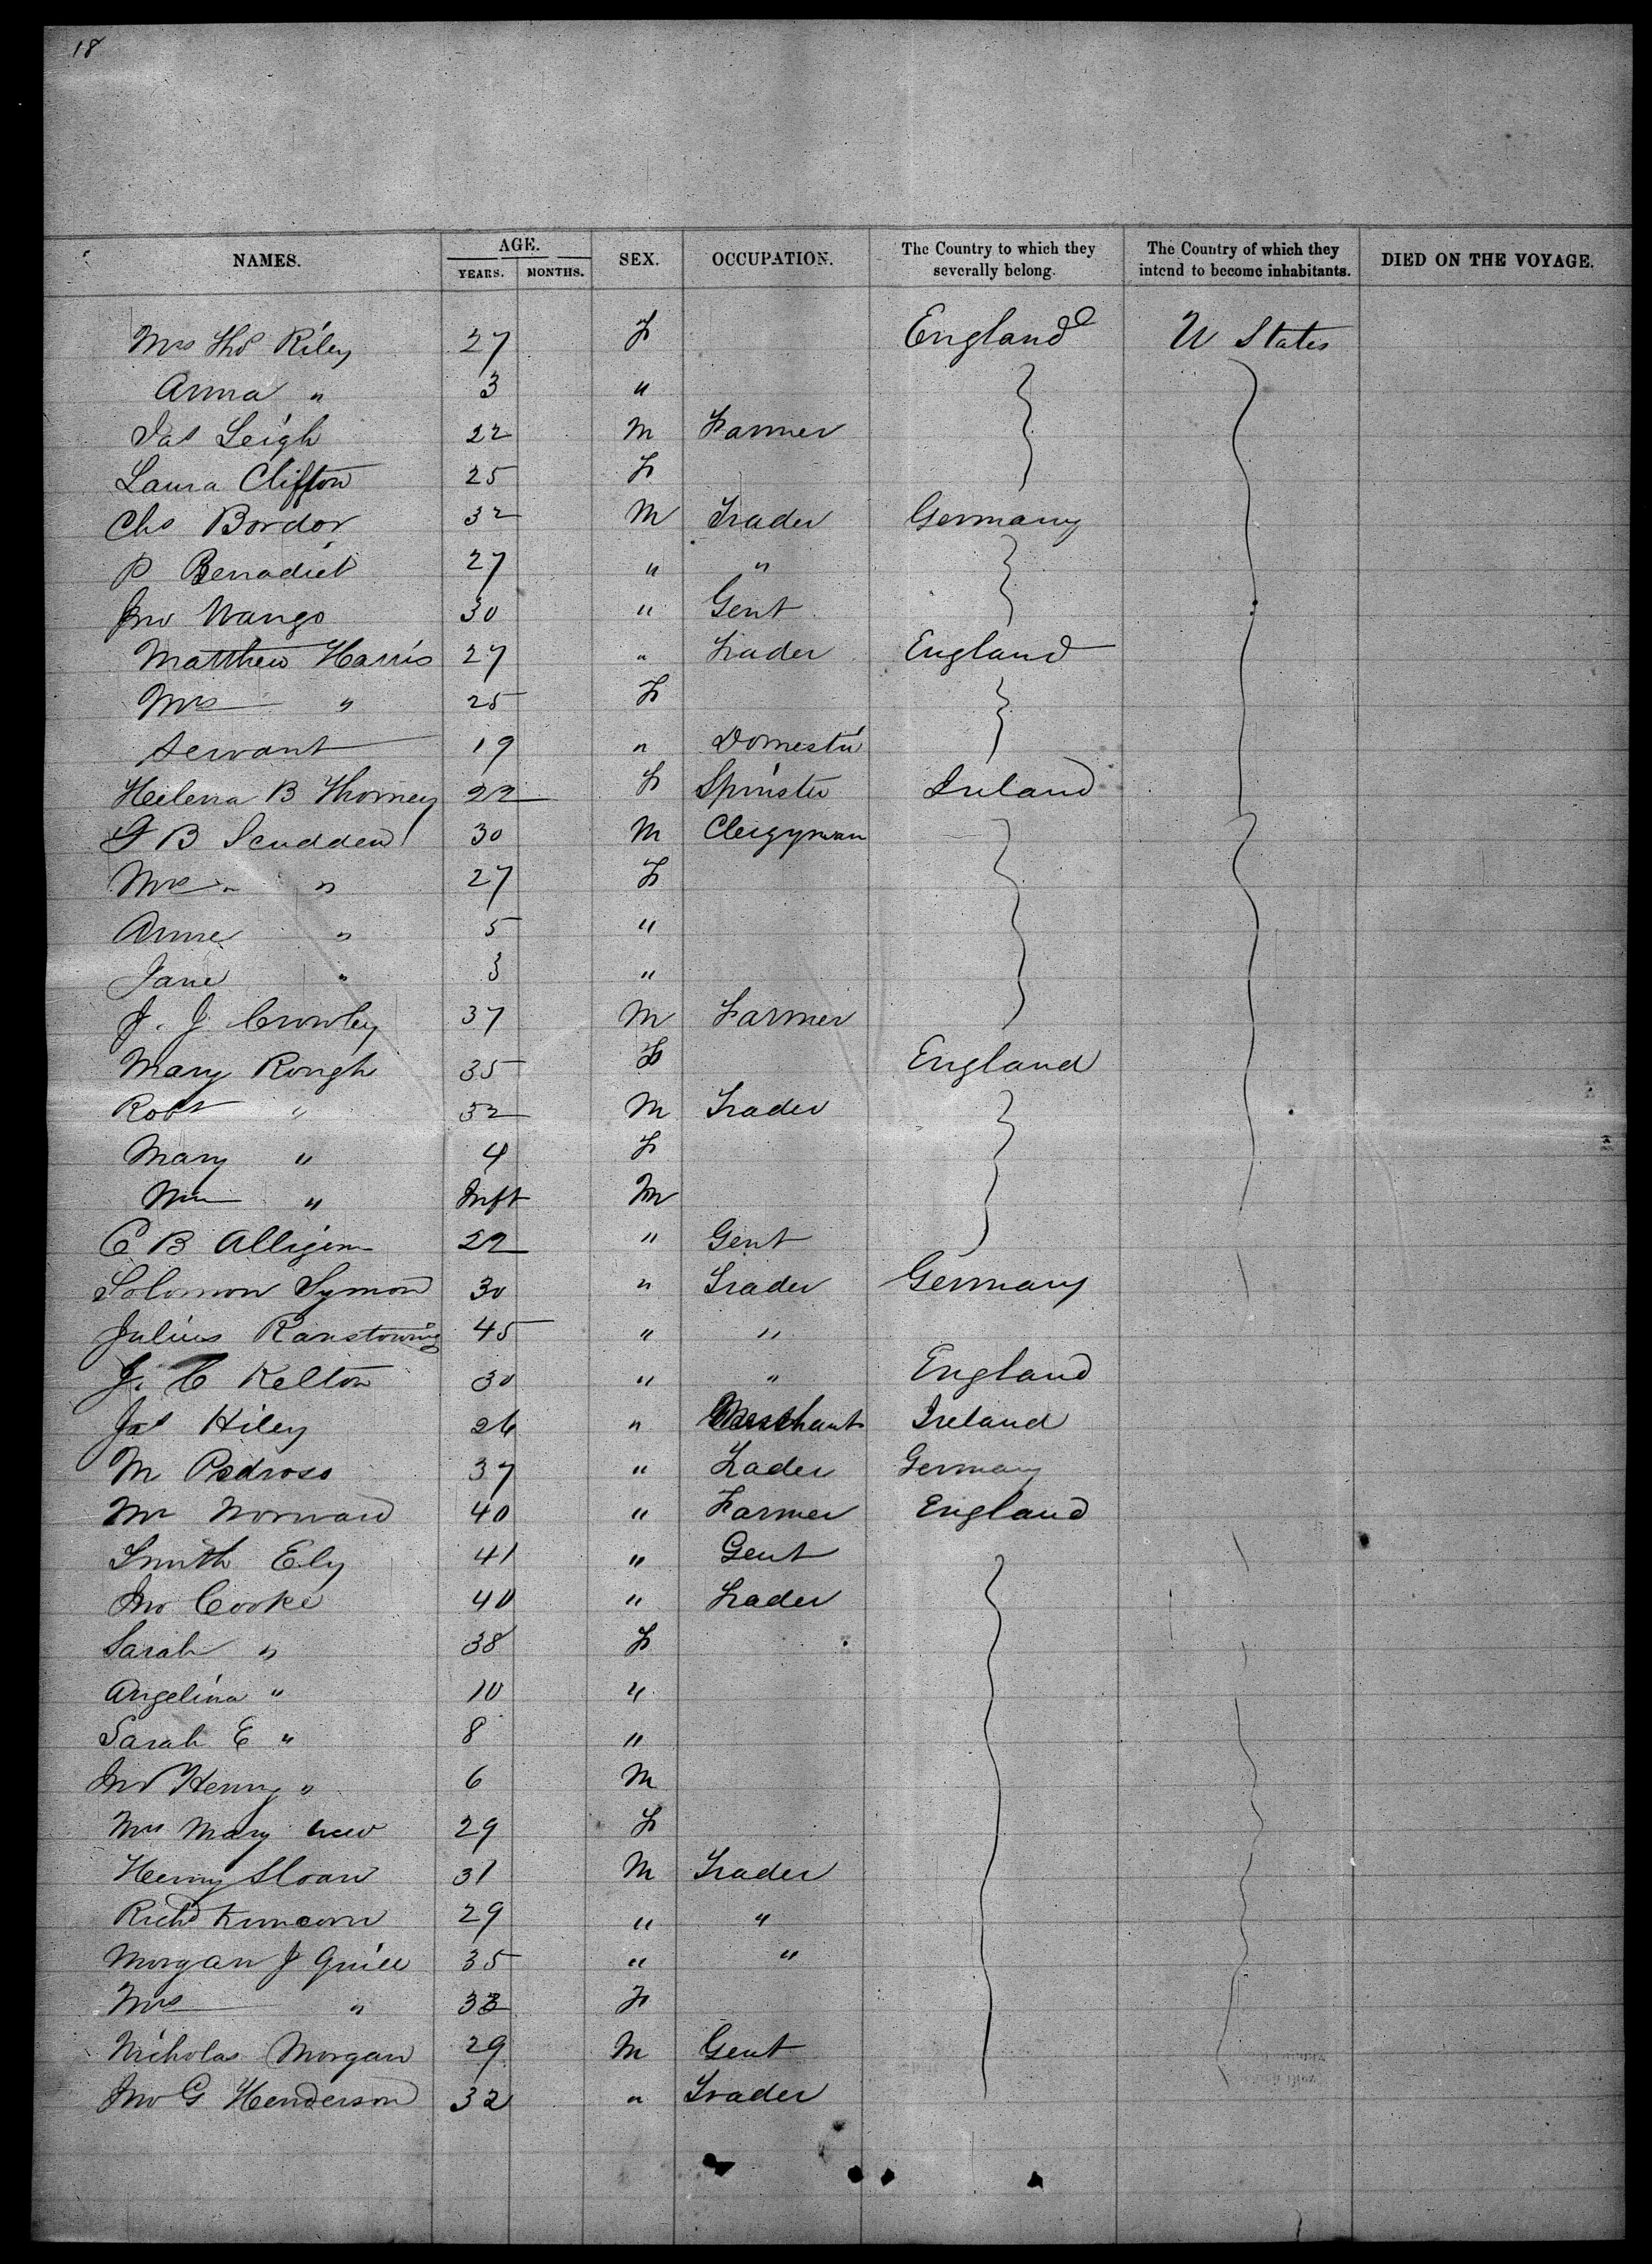 18
NAMES. AGE. YEARS. MONTHS. SEX. OCCUPATION. The Country to which they severally belong. The Country of which they intend to become inhabitants. DIED ON THE VOYAGE.
Mrs Thos Riley 27 F England U States
Anna " 3 "
Jas Leigh 22 M Farmer
Laura Clifton 25 F
Chs Bordor 32 M Trader Germany
P Benadict 27 " "
Jno Wango 30 " Gent
Matthew Harris 27 " Trader England
Mrs " 25 F
Servant 19 " Domestic
Helena B Thorney 22 F Spinster Ireland
B Scudden 30 M Clergyman
Mrs " " 27 F
Anne " 5 "
Jane " 3 "
J. J Crowley 37 M Farmer
Mary Rough 35 F England
Robt " 32 M Trader
Mary " 4 F
Wm " Inft M
C B 22 " Gent
Solomon Symon 30 " Trader Germany
Julius 45 " "
J. C Kelton 30 " " England
Jas Hiley 26 " Merchant Ireland
M Pedroso 37 " Trader Germany
Mr Norward 40 " Farmer England
Smith Ely 41 " Gent
Jno Cooke 40 " Trader
Sarah " 38 F
Angelina " 10 "
Sarah E " 8 "
Jno Henry " 6 M
Mrs Mary New 29 F
Henry Sloan 31 M Trader
Richd 29 " "
Morgan J Quill 35 " "
Mrs " 33 F
Nicholas Morgan 29 M Gent
Jno G Henderson 32 " Trader